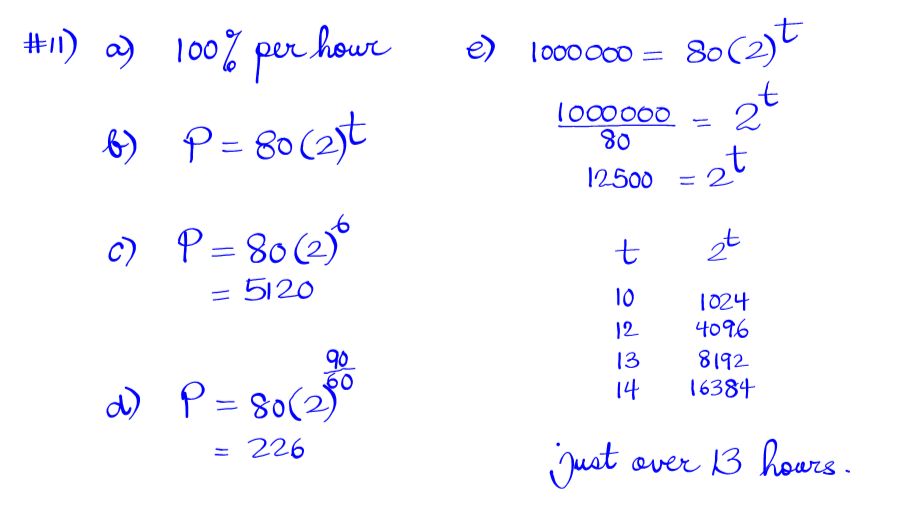 #11) a) 100% per hour
b) P = 80(2)^t
c) P = 80(2)^6
= 5120
d) P = 80(2)^(90/60)
= 226
e) 1000000 = 80(2)^t
1000000/80 = 2^t
12500 = 2^t
t 2^t
10 1024
12 4096
13 8192
14 16384
just over 13 hours.